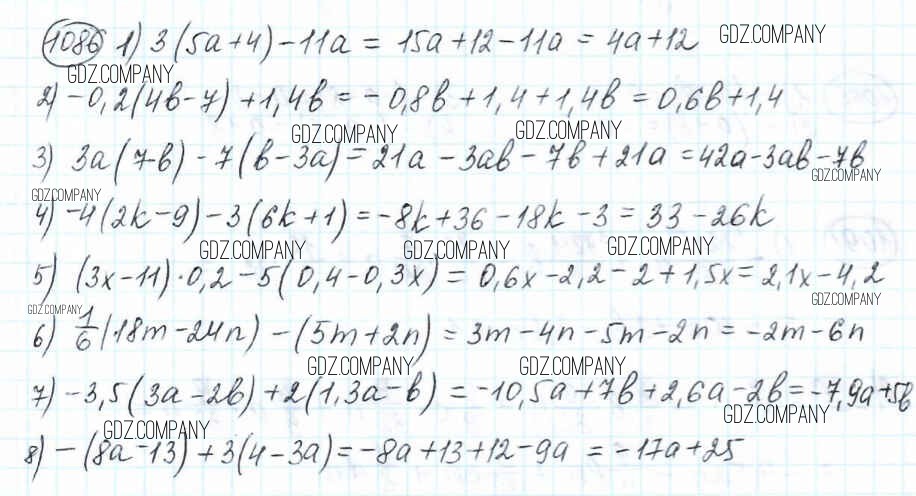 1086 1) 3(5a+4)-11a = 15a+12-11a = 4a+12 GDZ.COMPANY
GDZ.COMPANY
2) -0,2(4b-7)+1,4b = -0,8b+1,4+1,4b = 0,6b+1,4
GDZ.COMPANY GDZ.COMPANY
3) 3a(7-b)-7(b-3a) = 21a-3ab-7b+21a = 42a-3ab-7b
GDZ.COMPANY GDZ.COMPANY
4) -4(2k-9)-3(6k+1) = -8k+36-18k-3 = 33-26k
GDZ.COMPANY GDZ.COMPANY GDZ.COMPANY
5) (3x-11)·0,2-5(0,4-0,3x) = 0,6x-2,2-2+1,5x = 2,1x-4,2
GDZ.COMPANY GDZ.COMPANY
6) 1/6(18m-24n)-(5m+2n) = 3m-4n-5m-2n = -2m-6n
GDZ.COMPANY GDZ.COMPANY
7) -3,5(3a-2b)+2(1,3a-b) = -10,5a+7b+2,6a-2b = -7,9a+5b
GDZ.COMPANY GDZ.COMPANY
8) -(8a-13)+3(4-3a) = -8a+13+12-9a = -17a+25